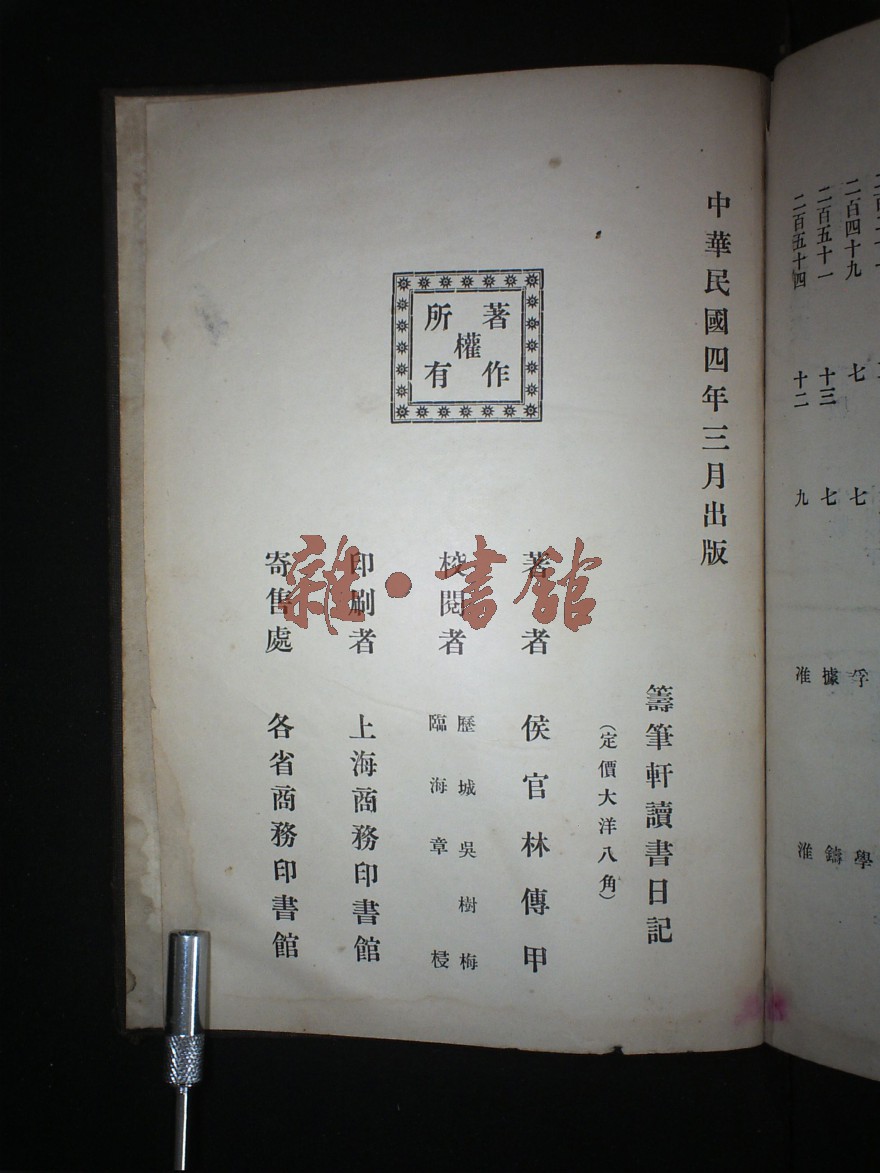 二百四十九 七 七 孚 學
二百五十一 十三 七 據 鑄
二百五十四 十二 九 准 淮
中華民國四年三月出版
著作權所有
籌筆軒讀書日記
(定價大洋八角)
著者 侯官林傳甲
校閱者 歷城吳樹梅
臨海章梫
印刷者 上海商務印書館
寄售處 各省商務印書館
雜·書館